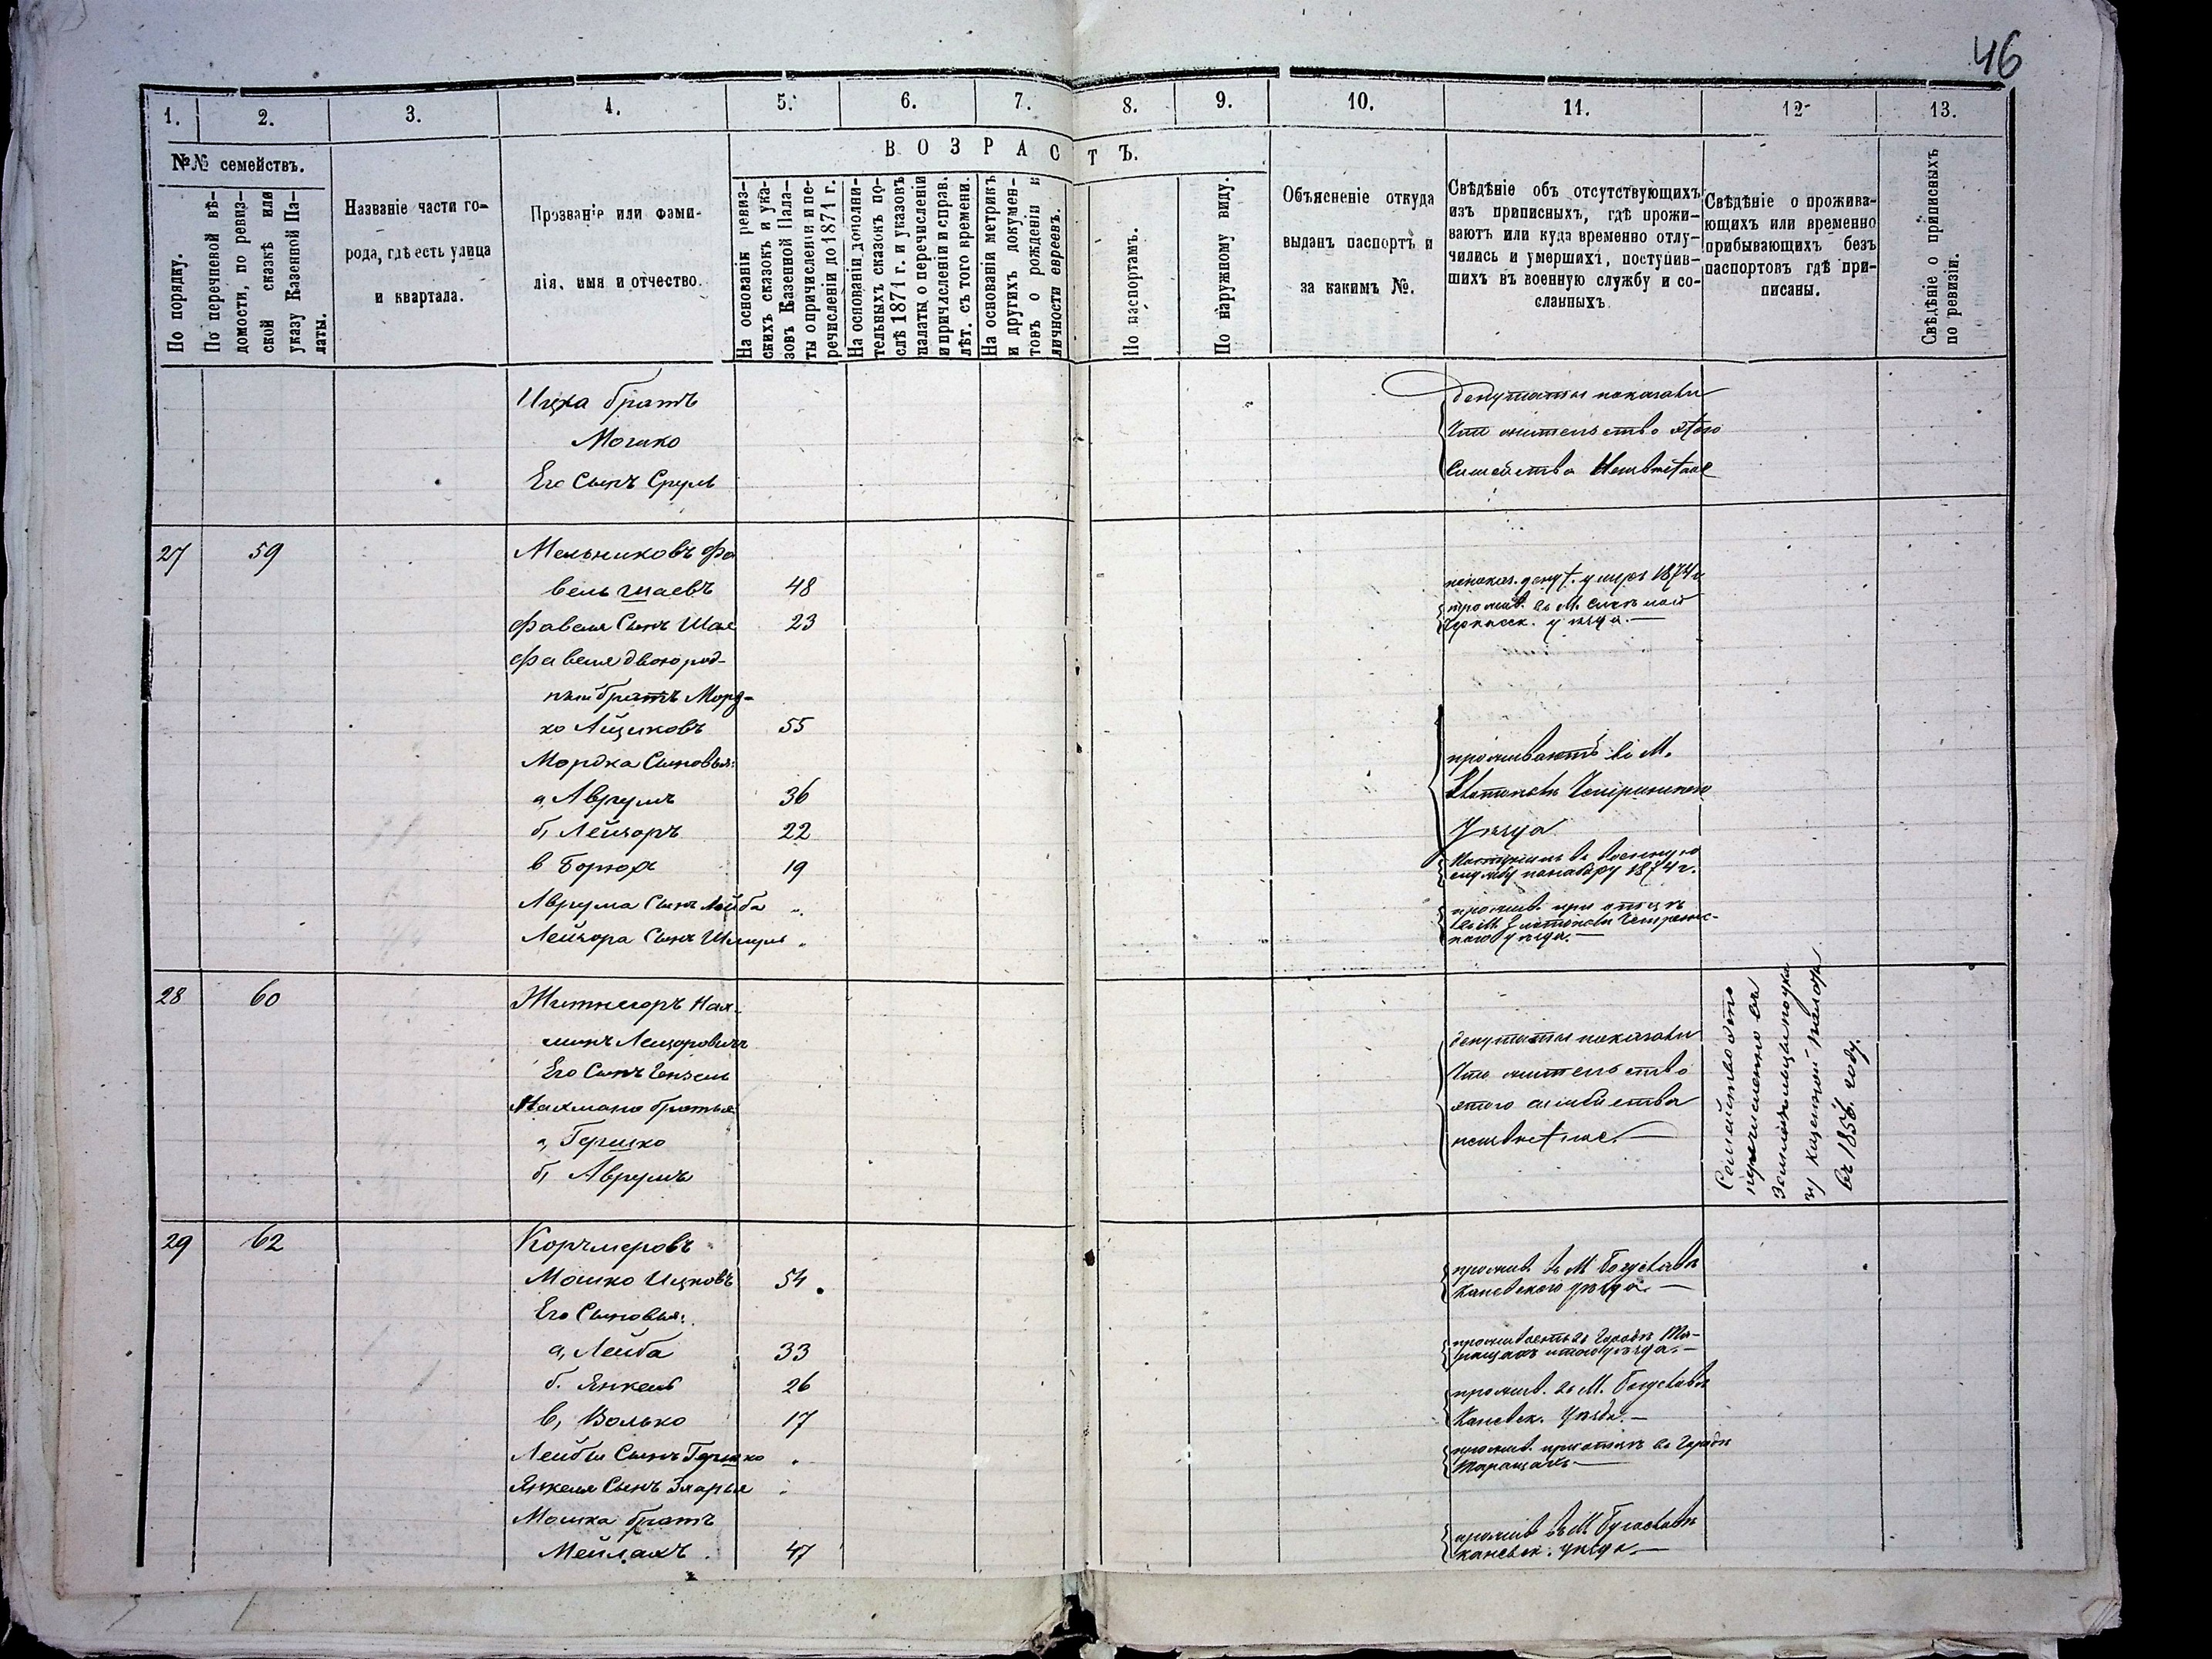 46
1. 2. 3. 4. 5. 6. 7. 8. 9. 10. 11. 12 13.
№№ семействъ.
ВОЗРАСТЪ.
По порядку.
По перечневой вѣ-
домости, по ревиз-
ской сказкѣ или
указу Казенной Па-
латы.
Названіе части го-
рода, гдѣ есть улица
и квартала.
Прозваніе или фами-
лія, имя и отчество.
На основаніи ревиз-
скихъ сказокъ и ука-
зовъ Казенной Пала-
ты о причисленіи и пе-
речисленіи до 1871 г.
На основаніи дополни-
тельныхъ сказокъ по-
слѣ 1871 г. и указовъ
палаты о перечисленіи
и причисленіи и справ.
лѣт. съ того времени.
На основаніи метрикъ
и другихъ докумен-
товъ о рожденіи и
личности евреевъ.
По паспортамъ.
По наружному виду.
Объясненіе откуда
выданъ паспортъ и
за какимъ №.
Свѣдѣніе объ отсутствующихъ
изъ приписныхъ, гдѣ прожи-
ваютъ или куда временно отлу-
чились и умершихъ, поступив-
шихъ въ военную службу и со-
сланныхъ.
Свѣдѣніе о прожива-
ющихъ или временно
прибывающихъ безъ
паспортовъ гдѣ при-
писаны.
Свѣдѣніе о приписныхъ
по ревизіи.
Ицка братъ
Мошко
Его Сынъ Сруль
депутаты показали
Что жительство этого
Семейства Неизвѣстное
27 59 Мельниковъ Фа
вель Шаевъ 48
показ. депут. умеръ 1874 г.
Фавеля Сынъ Шая 23
прожив. въ М.
Черкасск. уѣзда.
Фавеля двоюрод-
ный братъ Морд-
ко Айзиковъ 55
Мордка Сыновья:
а, Аврумъ 36
б, Лейзоръ 22
проживаютъ въ М.
Златополѣ Чигиринскаго
Уѣзда
в Борохъ 19
Поступилъ въ военную
службу по набору 1874 г.
Аврума Сынъ Лейба "
Лейзора Сынъ Шмуль "
прожив. при отцѣ
въ М. Златополѣ Чигирин-
скаго уѣзда.
28 60 Житнегоръ Нах-
манъ Лейзоровичъ
Его Сынъ Гензель
Нахмана братья:
а, Гершко
б, Аврумъ
депутаты показали
Что жительство
этого семейства
неизвѣстное.
Семейство это
перечислено въ
Казенной палаты
въ 1856. году.
29 62 Корчмеровъ
Мошко Ицковъ 54
прожив. въ М. Богуславѣ
Каневскаго уѣзда.
Его Сыновья:
а, Лейба 33
проживаетъ въ Городѣ Та-
ращахъ уѣзда.
б. Янкель 26
в, Волько 17
прожив. въ М. Богуславѣ
Каневск. Уѣзда.
Лейбы Сынъ Гершко "
прожив. при отцѣ въ Городѣ
Таращахъ
Янкеля Сынъ Зхарья "
Мошка братъ
Мейлахъ 47
прожив. въ М. Богуславѣ
каневск. уѣзда.